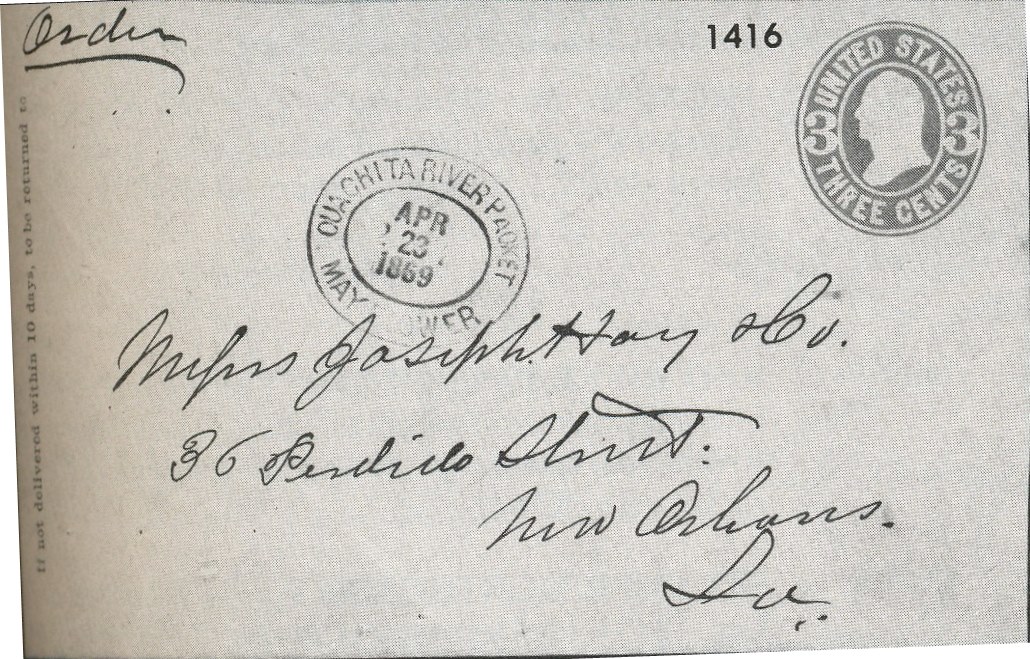 Order
1416
UNITED STATES
3 3
THREE CENTS
If not delivered within 10 days, to be returned to
OUACHITA RIVER PACKET
APR
23
1869
MAY OWER
Messrs Joseph Hoy & Co.
36 Perdido Street.
New Orleans.
La.